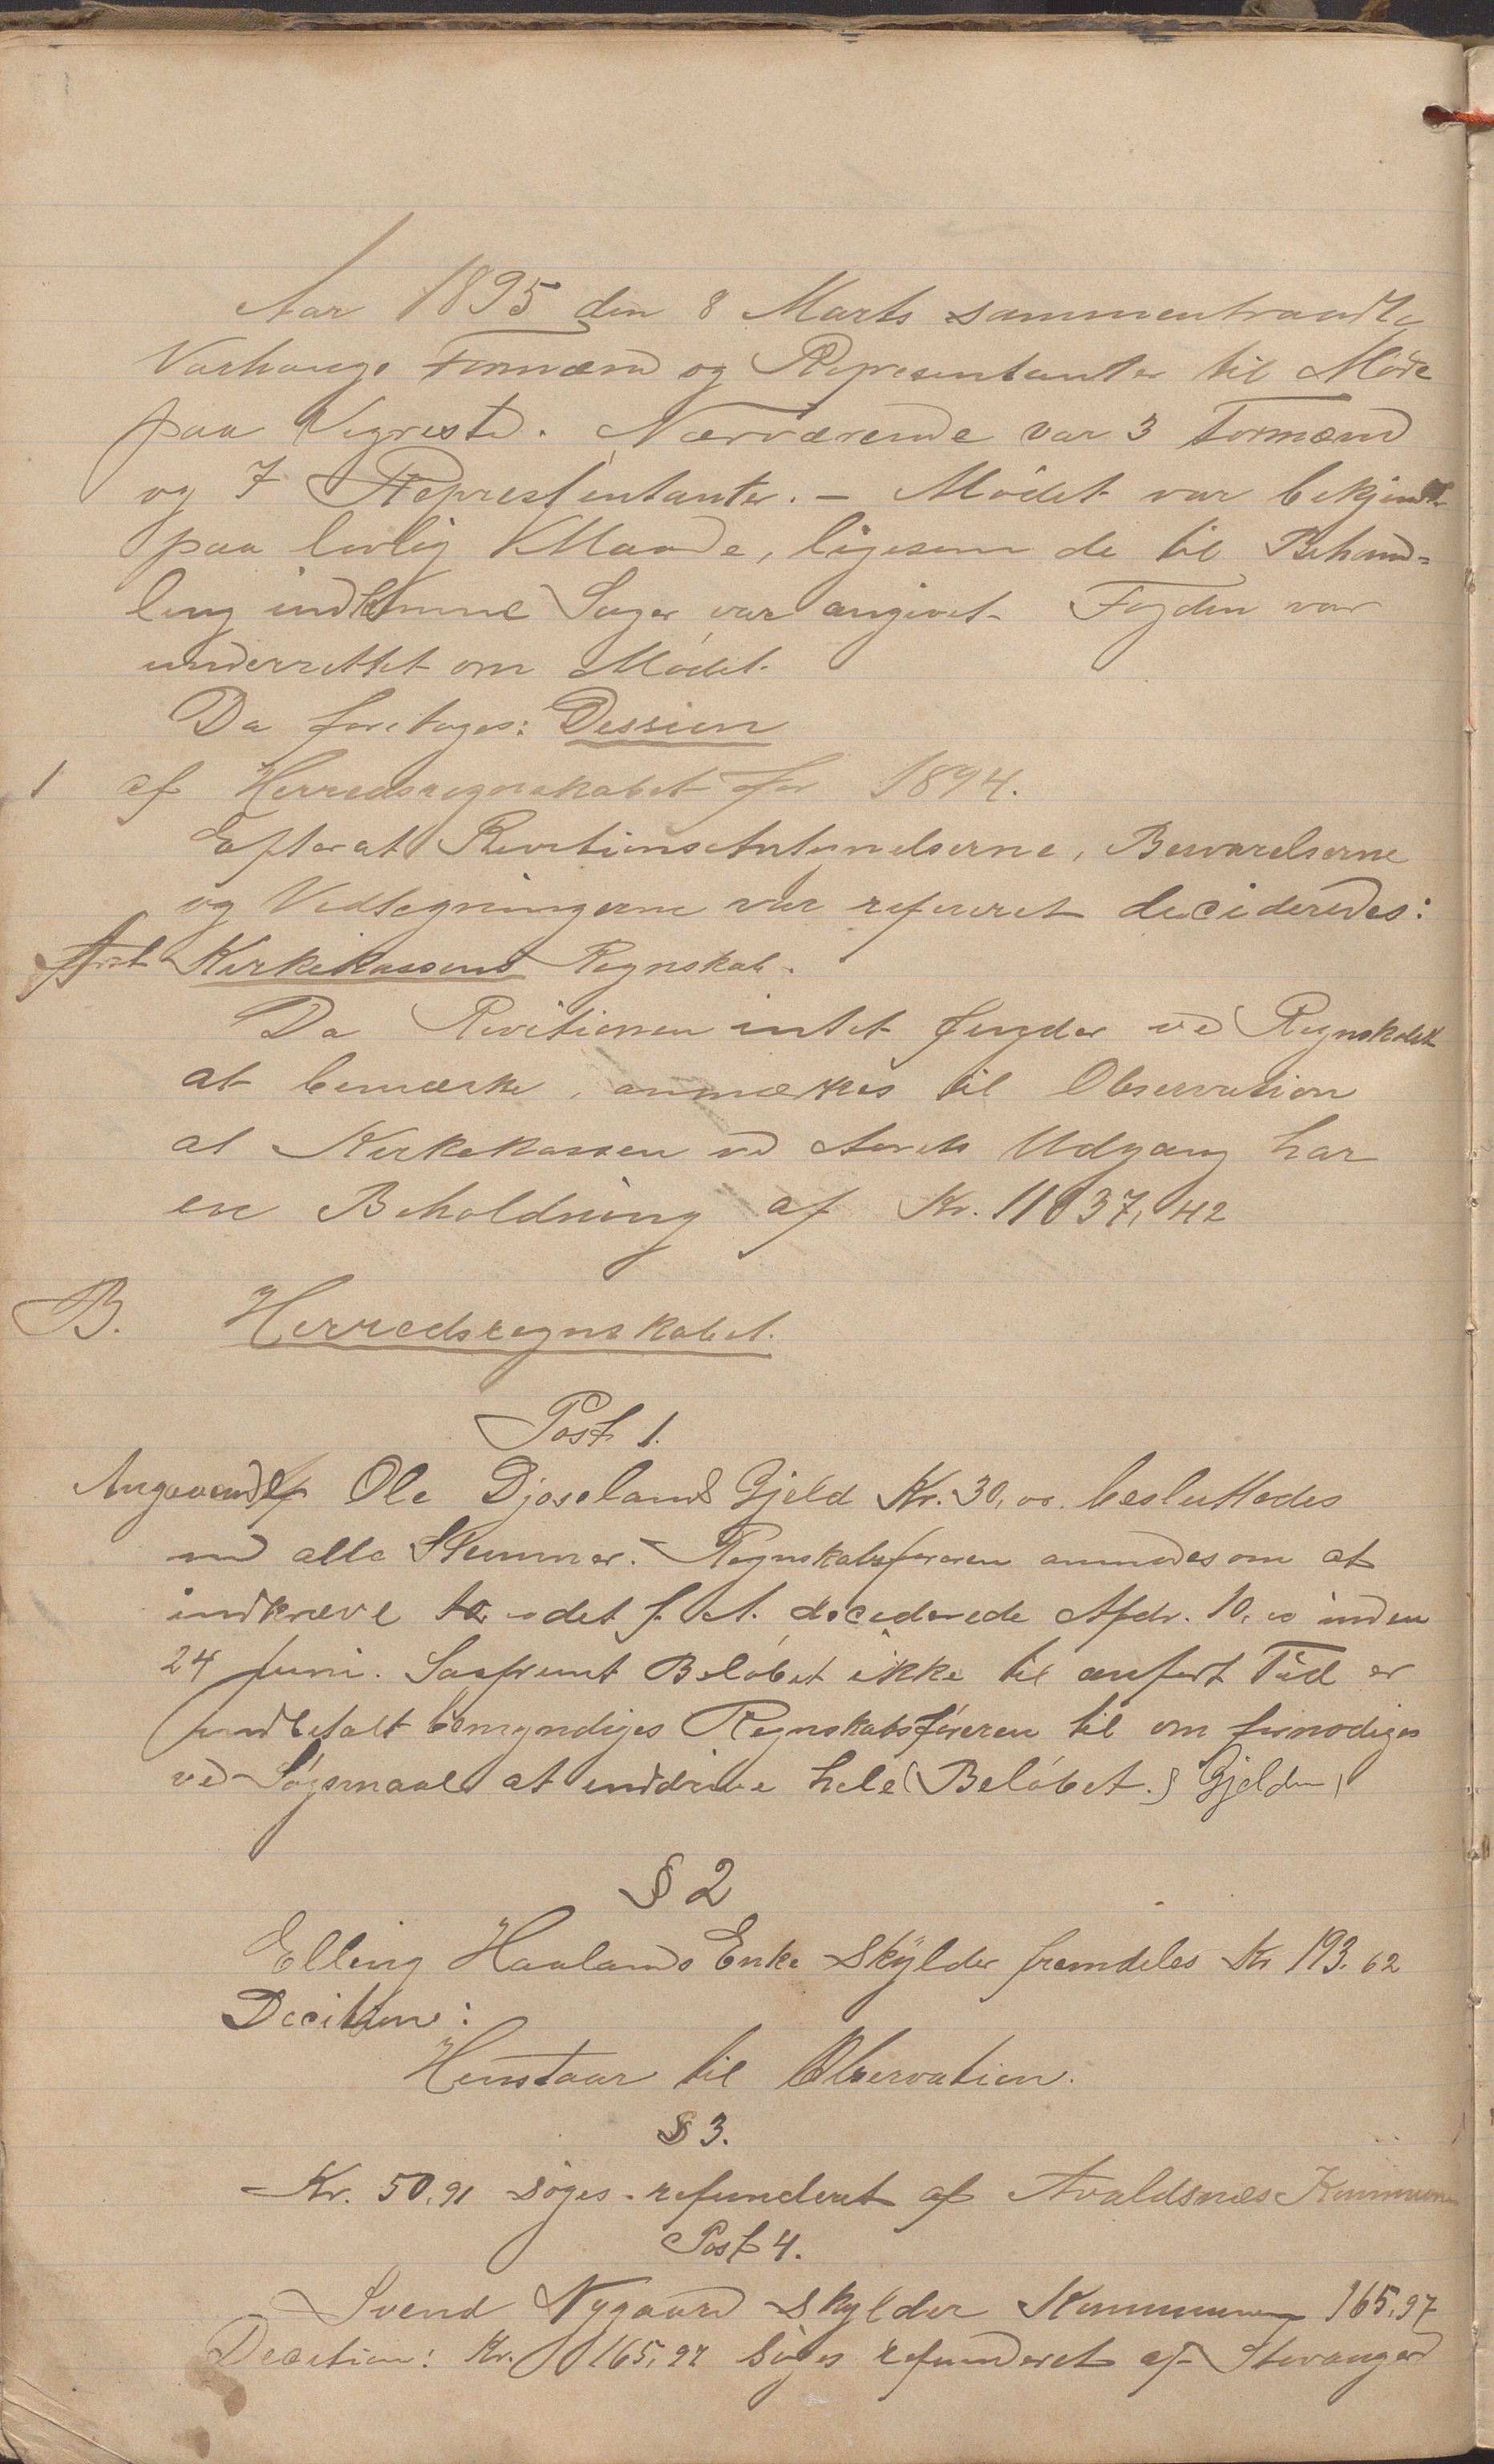 Aar 1895 den 8 Marts sammentraadte
Varhaugs Formænd og Representanter til Møde
paa Vigrestad. Nærværende var 3 Formænd
og 7 Representanter. – Mødet var bekjendt
paa lovlig Maade, ligesom de til Behand-
ling indkomne Sager var angivet. Fogden var
underrettet om Mødet.
Da foretoges: Dession
1 af Herredsregnskabet for 1894.
Efterat Revitions Antegnelserne, Besvarelserne
og Vedtegningerne var refereret decideredes:
Kirkekassens Regnskab.
Da Revitionen intet finder ved Regnskabet
at bemærke, anmærkes til Observation
at Kirkekassen ved Aarets Udgang har
en Beholdning af Kr. 11837,42
B. Herredsregnskabet.
Post 1.
Angaaende Ole Djoselands Gjeld Kr. 30,00. besluttedes
med alle Stemmer. Regnskabsføreren anmodes om at
indkræve det f. A. deciderede Afdr. 10,00 inden
24 Juni. Saafremt Beløbet ikke til anført Tid er
indbetalt bemyndiges Regnskabsføreren til om fornødiges
ved Søgsmaal at inddrive hele (Beløbet.) Gjelden
§ 2
Elling Haalands Enke Skylder fremdeles Kr 193.62
Decition:
Henstaar til Observation.
§ 3.
Kr. 50,91 søges refunderet af Avaldsnæs Kommune
Post 4.
Svend Nygaard Skylder Kommunen 165,97
Decition: Kr. 165,97 søges refunderet af Stavanger